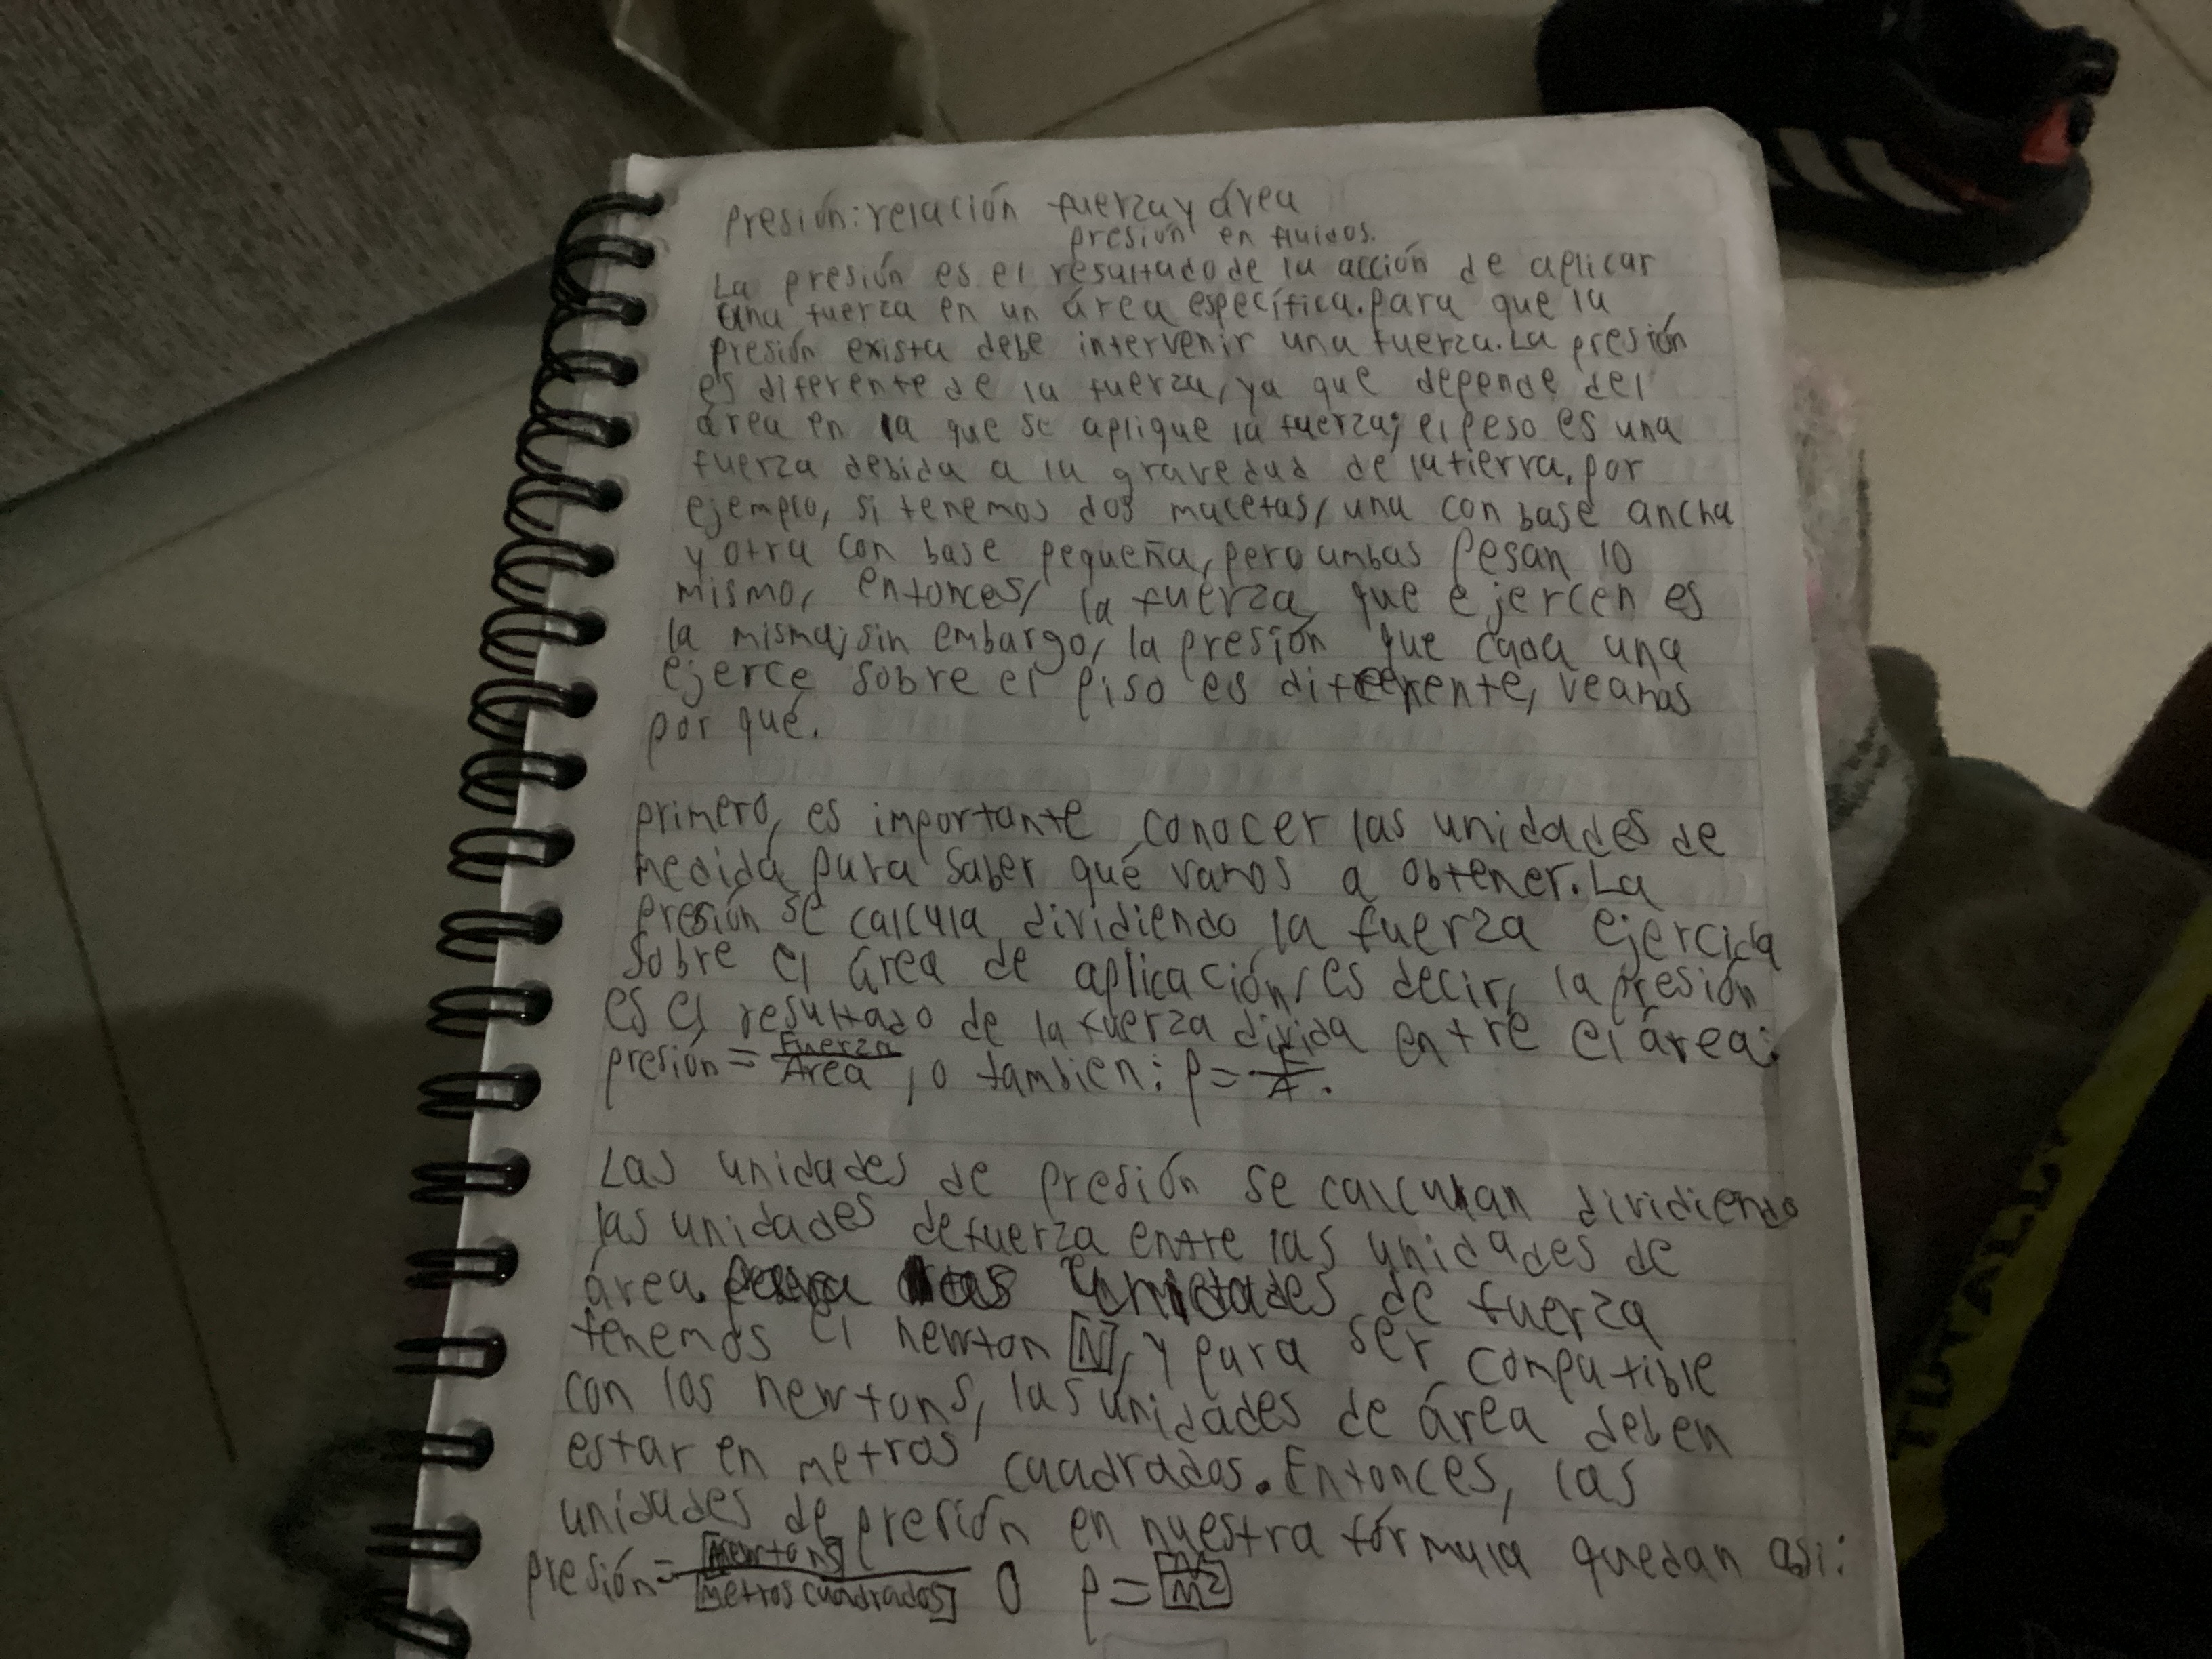 Presión: relación fuerza y área
presión en fluidos.
La presión es el resultado de la acción de aplicar
una fuerza en un área específica. Para que la
presión exista debe intervenir una fuerza. La presión
es diferente de la fuerza, ya que depende del
área en la que se aplique la fuerza; el peso es una
fuerza debida a la gravedad de la tierra. por
ejemplo, si tenemos dos macetas, una con base ancha
y otra con base pequeña, pero ambas pesan lo
mismo, entonces, la fuerza que ejercen es
la misma; sin embargo, la presión que cada una
ejerce sobre el piso es diferente, veamos
por qué.
primero, es importante conocer las unidades de
medida para saber qué vamos a obtener. La
presión se calcula dividiendo la fuerza ejercida
sobre el área de aplicación, es decir, la presión
es el resultado de la fuerza divida entre el área:
presión = Fuerza / Area, o tambien: p = F / A.
Las unidades de presión se calculan dividiendo
las unidades de fuerza entre las unidades de
área. para las unidades de fuerza
tenemos el newton [N], y para ser compatible
con los newtons, las unidades de área deben
estar en metros cuadrados. Entonces, las
unidades de presión en nuestra fórmula quedan asi:
presión = [Newtons] / [metros cuadrados] o p = [N / m²]
TOTALLY